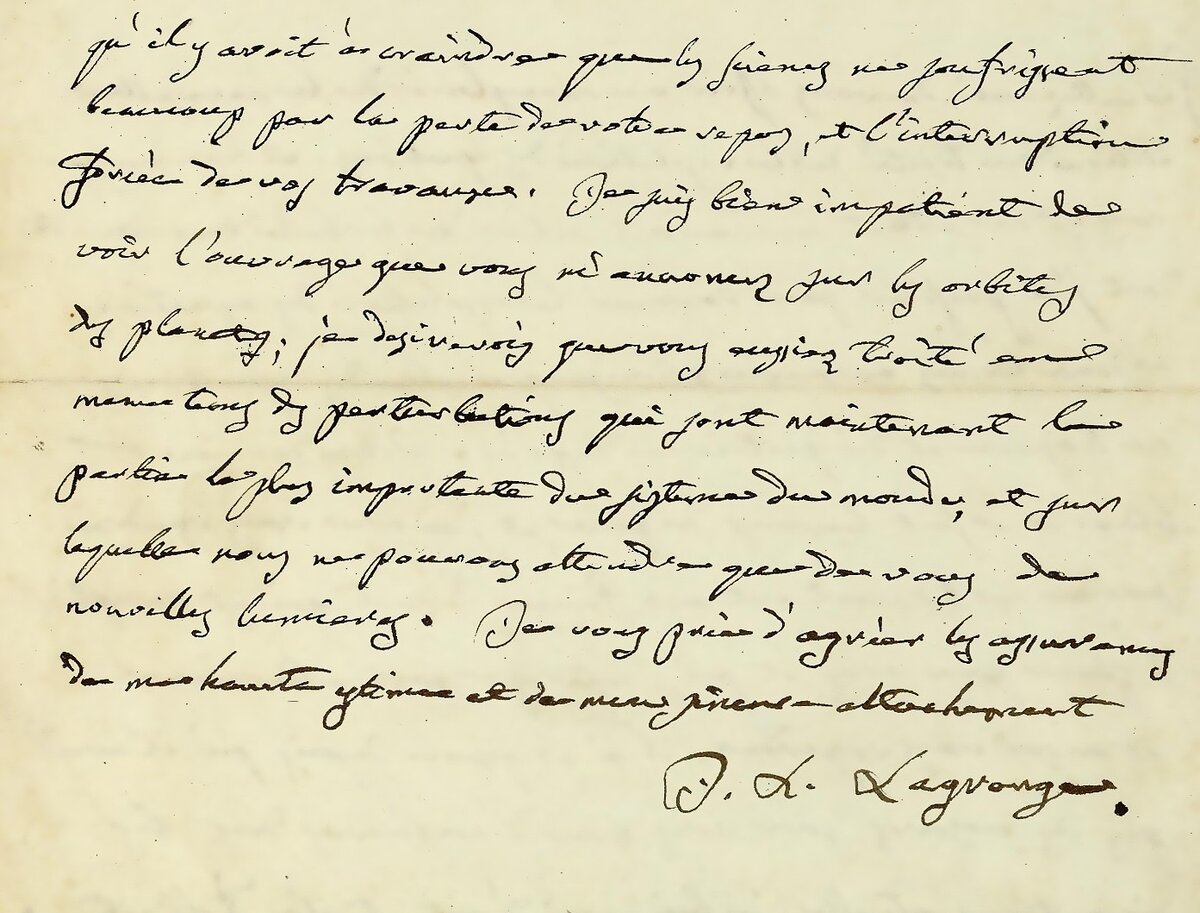 qu'il y avoit à craindre que les sciences ne souffrissent
beaucoup par la perte de votre repos, et l'interruption
forcée de vos travaux. Je suis bien impatient de
voir l'ouvrage que vous m'annoncez sur les orbites
des planetes; je desirerois que vous eussiez traité en
meme tems des perturbations qui sont maintenant la
partie la plus importante du sisteme du monde, et sur
laquelle nous ne pouvons attendre que de vous de
nouvelles lumieres. Je vous prie d'agréer les assurances
de ma haute estime et de mon sincere attachement
J. L. Lagrange.